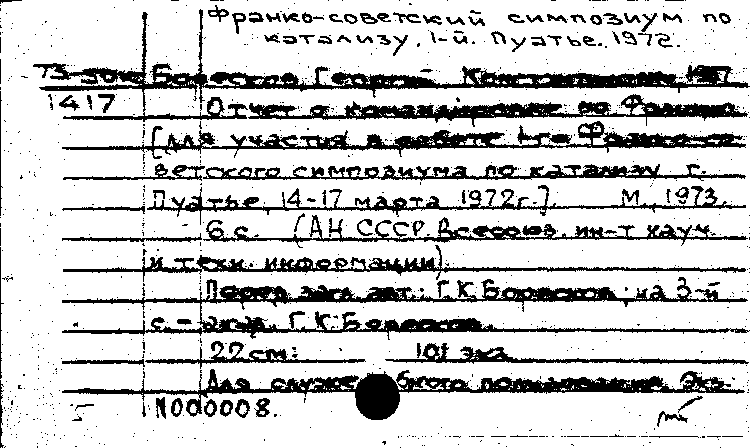 Франко-советский симпозиум по
катализу. 1-й. Пуатье. 1972.
73-30к Боресков, Георгий Константинович 1907
1417 Отчет о командировке во Францию
[для участия в работе 1-го Франко-со-
ветского симпозиума по катализу г.
Пуатье, 14-17 марта 1972г.]. М., 1973.
6 с. (АН СССР. Всесоюз. ин-т науч.
и техн. информации).
Перед загл. авт.: Г.К. Боресков; на 3-й
с. - акад. Г.К. Боресков.
22 см. 101 экз.
Для служебного пользования. Экз.
5 N000008.